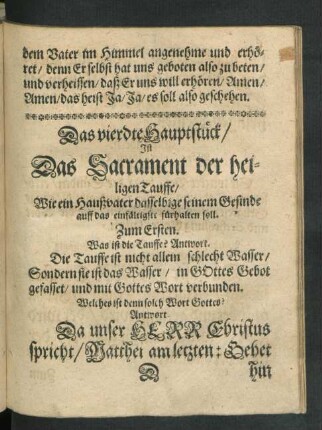 dem Vater im Himmel angenehme und erhö-
ret/ denn Er selbst hat uns geboten also zu beten/
und verheissen/ daß Er uns will erhören/ Amen/
Amen/ das heist Ja/ Ja/ es soll also geschehen.
Das vierdte Hauptstück/
Ist
Das Sacrament der hei-
ligen Tauffe/
Wie ein Haußvater dasselbige seinem Gesinde
auff das einfältigste fürhalten soll.
Zum Ersten.
Was ist die Tauffe? Antwort.
Die Tauffe ist nicht allein schlecht Wasser/
Sondern sie ist das Wasser/ in GOttes Gebot
gefasset/ und mit Gottes Wort verbunden.
Welches ist denn solch Wort Gottes?
Antwort.
Da unser HERR Christus
spricht/ Matthei am letzten: Gehet
D hin